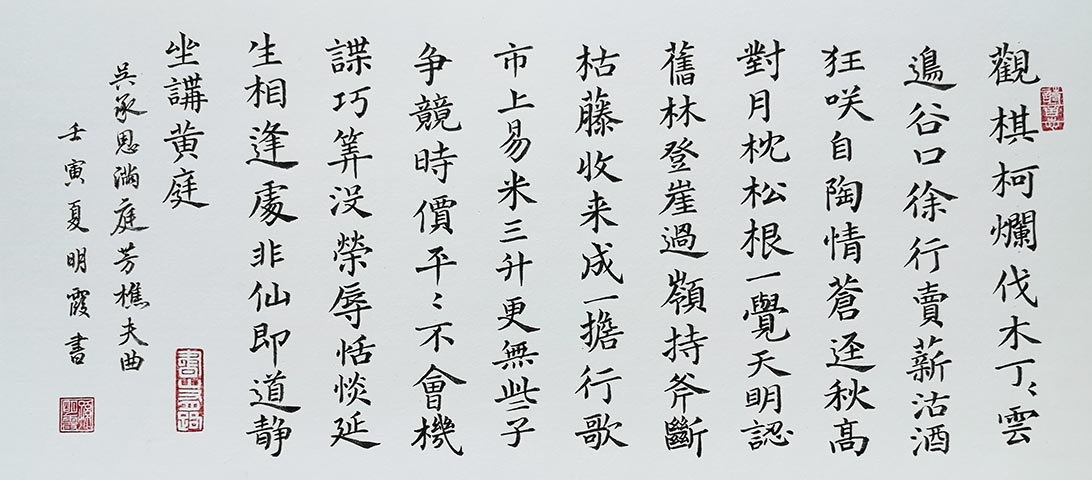 觀棋柯爛伐木丁〻雲
邊谷口徐行賣薪沽酒
狂咲自陶情蒼逕秋高
對月枕松根一覺天明認
舊林登崖過嶺持斧斷
枯藤收来成一擔行歌
市上易米三升更無些子
争競時價平〻不會機
謀巧筭没榮辱恬惔延
生相逢處非仙即道静
坐講黄庭
吴承恩滿庭芳樵夫曲
壬寅夏明霞書